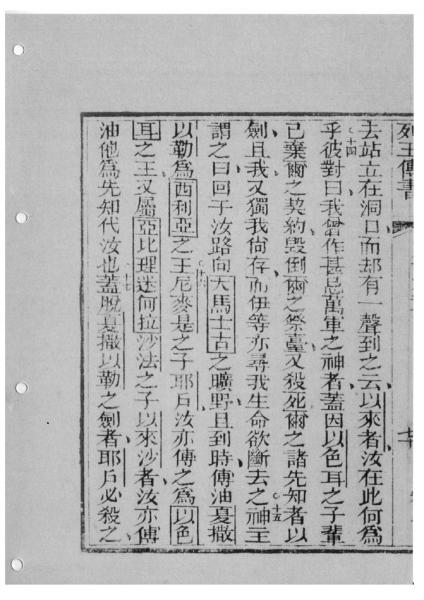 列王傳書
去站立在洞口而却有一聲到之云以來者汝在此何爲
乎十四彼對曰我曾作甚忌萬軍之神者蓋因以色耳之子輩
已棄爾之契約毀倒爾之祭臺又殺死爾之諸先知者以
劍且我又獨我尚存而伊等亦尋我生命欲斷去之十五神主
謂之曰回于汝路向大馬士古之曠野且到時傳油夏撒
以勒爲西利亞之王十六尼麥是之子耶戶汝亦傳之爲以色
耳之王又屬亞比理迷何拉沙法之子以來沙者汝亦傳
油他爲先知代汝也十七蓋脫夏撒以勒之劍者耶戶必殺之